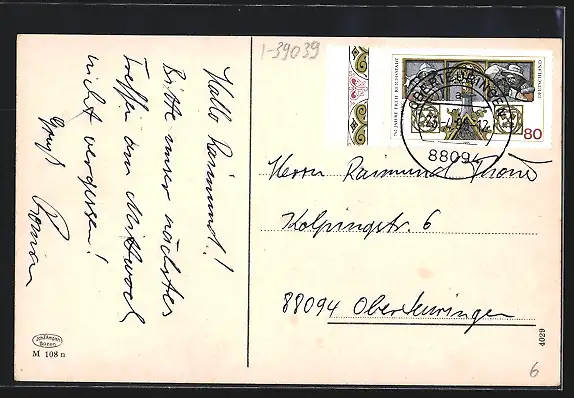 1-39039
Hallo Raimund!
Bitte unser nächstes
Treffen am Mittwoch
nicht vergessen!
Gruß Roman
750 JAHRE FREIE REICHSSTADT
DEUTSCHLAND
80
OBERTEURINGEN
88094
Herrn Raimund
Kolpingstr. 6
88094 Oberteuringen
M 108 n
4029
6